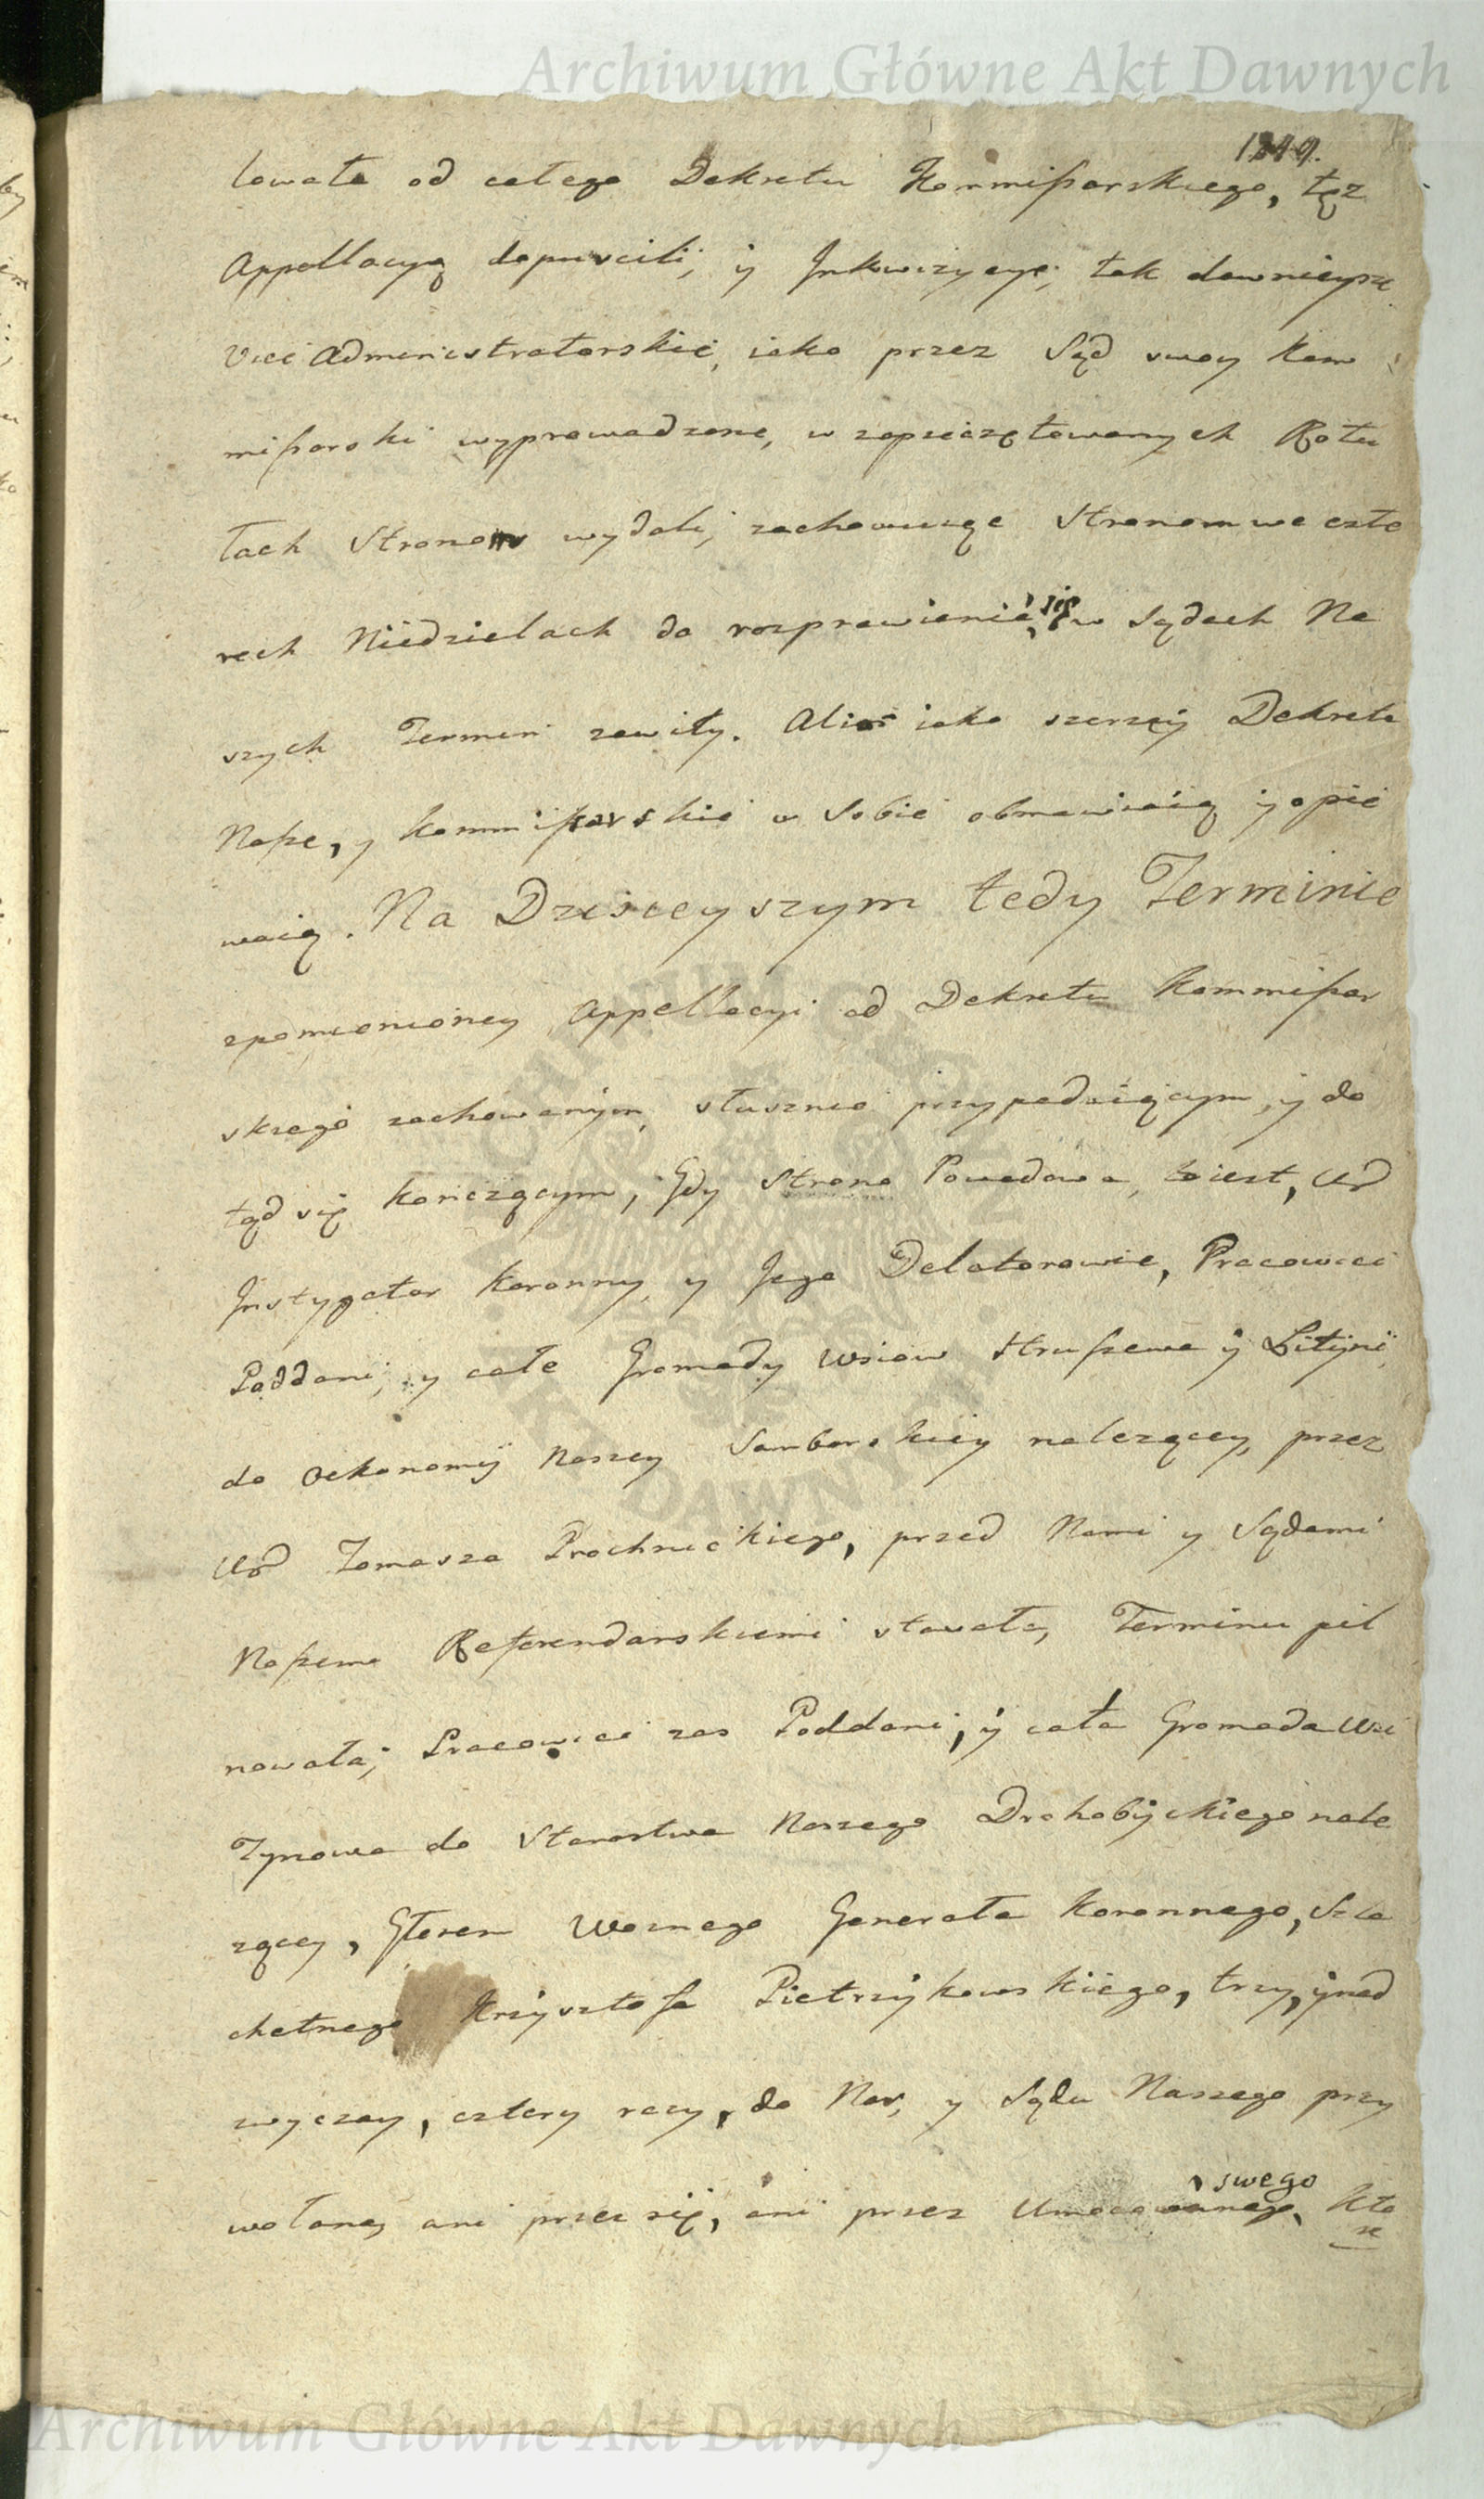 Archiwum Główne Akt Dawnych
1349.
lowała od całego Dekretu Kommißarskiego, tęż
Appellacyą dopuscili, y Inkwizycye, tak dawnieysze
Vice Administratorskie, iako przez Sąd swoy Kom
mißarski wyprowadzone, w zapieczętowanych Rotu
łach Stronom wydali, zachowuiąc Stronom we czte
rech Niedzielach do rozprawienia się w Sądach Na
szych Termin zawity. Alias iako szerzey Dekreta
Nasze, y Kommißarskie w Sobie obmawiaią y opie
waią. Na Dzisieyszym tedy Terminie
zpomnioney Appellacyi od Dekretu Kommißar
skiego zachowanym, słusznie przypadaiącym, y do
tąd się kończącym, Gdy Strona Powodowa, to iest, Ur
Instygator Koronny, y Jego Delatorowie, Pracowici
Poddani, y całe Gromady Wsiow Hruszowa y Lityni,
do Oekonomij Naszey Samborskiey należącey, przez
Ur Tomasza Prochnickiego, przed Nami y Sądami
Naszemi Referendarskiemi stawała, Terminu pil
nowała; Pracowici zas Poddani, y cała Gromada Wsi
Tynowa do Starostwa Naszego Drohobyckiego nale
żącey, Głosem Woznego Generała Koronnego, Szla
chetnego Krzysztofa Pietrzykowskiego, trzy, y nad
zwyczay, cztery razy, do Nas, y Sądu Naszego przy
wołana, ani przez się, ani przez Umocowanego swego, Kto
re
Archiwum Główne Akt Dawnych